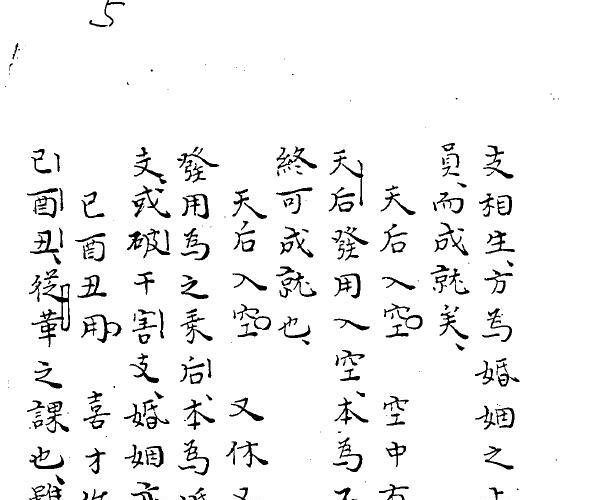 5
支相生、方為婚姻之
員、而成就美、
天后入空 空中有
天后發用入空、本為
終可成就也、
天后入空 又休又
發用為之乗后、本為
支、或破干害支、婚姻亦
已酉丑用 喜才
已酉丑、從革之課也、雖